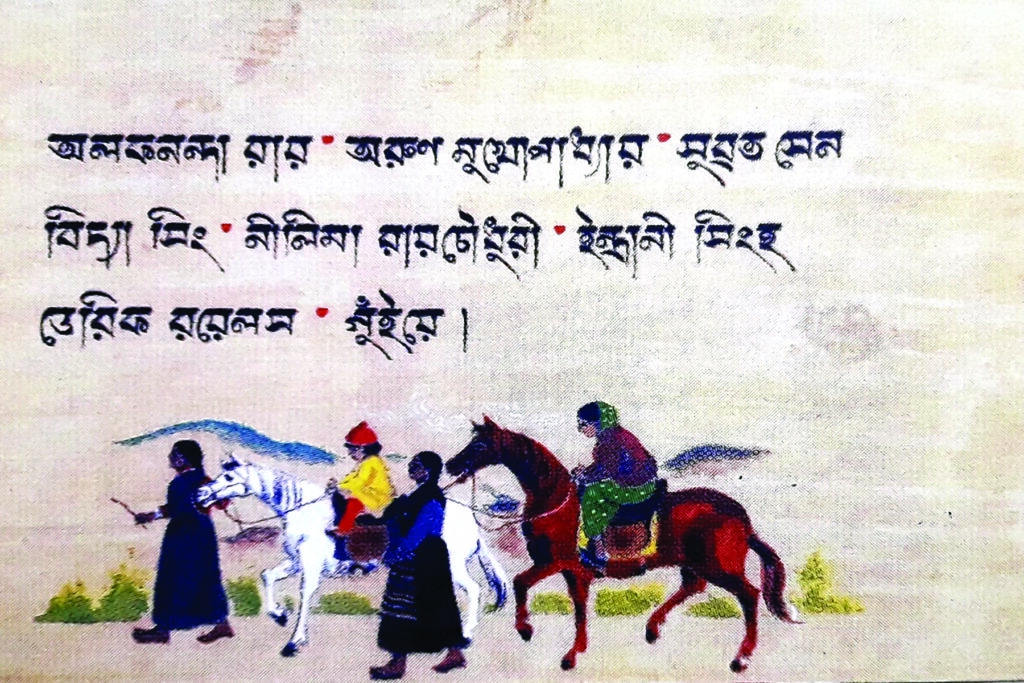 অলকনন্দা রায় • অরুণ মুখোপাধ্যায় • সুব্রত সেন
বিদ্যা সিং • নীলিমা রায়চৌধুরী • ইন্দ্রানী সিংহ
ডেরিক রয়েলস • গুঁইয়ে ।